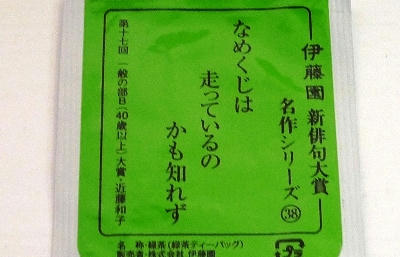 伊藤園 新俳句大賞
名作シリーズ㊳
なめくじは
走っているの
かも知れず
第十七回 一般の部B(40歳以上)大賞・近藤和子
名 称・緑茶(緑茶ティーバッグ)
製造者・株式会社 伊藤園